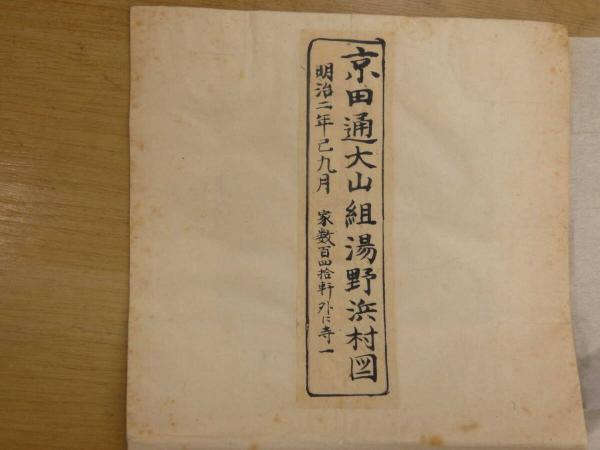 京田通大山組湯野浜村図
明治二年己九月 家数百四拾軒外に寺一